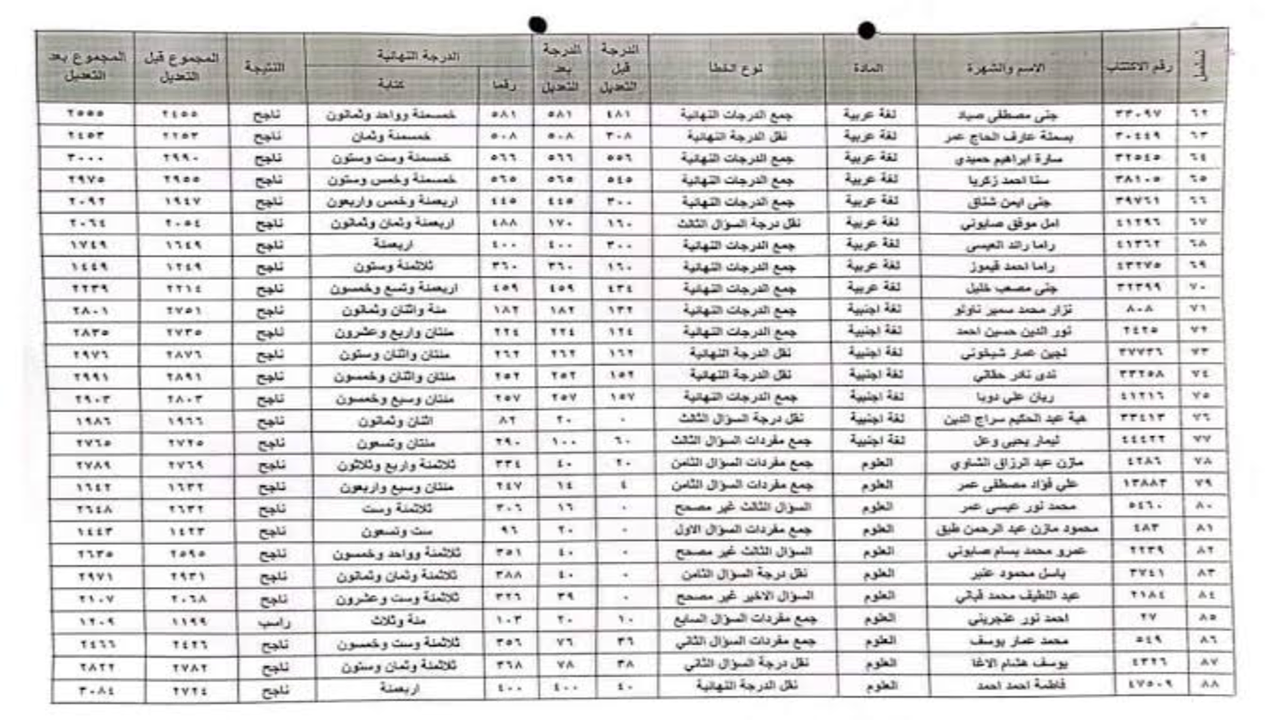 تسلسل | رقم الاكتتاب | الاسم والشهرة | المادة | نوع الخطا | الدرجة قبل التعديل | الدرجة بعد التعديل | الدرجة النهائية رقما | الدرجة النهائية كتابة | النتيجة | المجموع قبل التعديل | المجموع بعد التعديل
٦٢ | ٣٣٠٩٧ | جنى مصطفى صياد | لغة عربية | جمع الدرجات النهائية | ٤٨١ | ٥٨١ | ٥٨١ | خمسمئة وواحد وثمانون | ناجح | ٢٤٥٥ | ٢٥٥٥
٦٣ | ٣٠٤٤٩ | بسمثة عارف الحاج عمر | لغة عربية | نقل الدرجة النهائية | ٣٠٨ | ٥٠٨ | ٥٠٨ | خمسمئة وثمان | ناجح | ٢٢٥٣ | ٢٤٥٣
٦٤ | ٣٢٥٤٥ | سارة ابراهيم حميدي | لغة عربية | جمع الدرجات النهائية | ٥٥٦ | ٥٦٦ | ٥٦٦ | خمسمئة وست وستون | ناجح | ٢٩٩٠ | ٣٠٠٠
٦٥ | ٣٨١٠٥ | سنا احمد زكريا | لغة عربية | جمع الدرجات النهائية | ٥٤٥ | ٥٦٥ | ٥٦٥ | خمسمئة وخمس وستون | ناجح | ٢٩٥٥ | ٢٩٧٥
٦٦ | ٣٩٧٦١ | جنى ايمن شناق | لغة عربية | جمع الدرجات النهائية | ٣٠٠ | ٤٤٥ | ٤٤٥ | اربعمئة وخمس واربعون | ناجح | ١٩٤٧ | ٢٠٩٢
٦٧ | ٤١٢٩٦ | امل موفق صابوني | لغة عربية | نقل درجة السؤال الثالث | ١٦٠ | ١٧٠ | ٤٨٨ | اربعمئة وثمان وثمانون | ناجح | ٢٠٥٤ | ٢٠٦٤
٦٨ | ٤١٣٦٢ | راما رائد العيسى | لغة عربية | جمع الدرجات النهائية | ٣٠٠ | ٤٠٠ | ٤٠٠ | اربعمئة | ناجح | ١٦٤٩ | ١٧٤٩
٦٩ | ٤٣٢٧٥ | راما احمد قيموز | لغة عربية | جمع الدرجات النهائية | ١٦٠ | ٣٦٠ | ٣٦٠ | ثلاثمئة وستون | ناجح | ١٢٤٩ | ١٤٤٩
٧٠ | ٣٢٣٩٩ | جنى مصعب خليل | لغة عربية | جمع الدرجات النهائية | ٤٣٤ | ٤٥٩ | ٤٥٩ | اربعمئة وتسع وخمسون | ناجح | ٢٢١٤ | ٢٢٣٩
٧١ | ٨٠٨ | نزار محمد سمير ناولو | لغة اجنبية | جمع الدرجات النهائية | ١٣٢ | ١٨٢ | ١٨٢ | مئة واثنان وثمانون | ناجح | ٢٧٥١ | ٢٨٠١
٧٢ | ٢٤٢٥ | نور الدين حسين احمد | لغة اجنبية | جمع الدرجات النهائية | ١٢٤ | ٢٢٤ | ٢٢٤ | مئتان واربع وعشرون | ناجح | ٢٧٣٥ | ٢٨٣٥
٧٣ | ٣٧٧٣٦ | لجين عمار شيخوني | لغة اجنبية | نقل الدرجة النهائية | ١٦٢ | ٢٦٢ | ٢٦٢ | مئتان واثنان وستون | ناجح | ٢٨٧٦ | ٢٩٧٦
٧٤ | ٣٣٢٥٨ | ندى نادر حقاني | لغة اجنبية | نقل الدرجة النهائية | ١٥٢ | ٢٥٢ | ٢٥٢ | مئتان واثنان وخمسون | ناجح | ٢٨٩١ | ٢٩٩١
٧٥ | ٤١٢١٦ | ريان علي دوبا | لغة اجنبية | جمع الدرجات النهائية | ١٥٧ | ٢٥٧ | ٢٥٧ | مئتان وسبع وخمسون | ناجح | ٢٨٠٣ | ٢٩٠٣
٧٦ | ٣٣٤١٣ | هبة عبد الحكيم سراج الدين | لغة اجنبية | نقل درجة السؤال الثالث | ٠ | ٢٠ | ٨٢ | اثنان وثمانون | ناجح | ١٩٦٦ | ١٩٨٦
٧٧ | ٤٤٤٢٢ | ليمار يحيى وعل | لغة اجنبية | جمع مفردات السؤال الثالث | ٦٠ | ١٠٠ | ٢٩٠ | مئتان وتسعون | ناجح | ٢٧٢٥ | ٢٧٦٥
٧٨ | ٤٢٨٦ | مازن عبد الرزاق الشاوي | العلوم | جمع مفردات السؤال الثامن | ٢٠ | ٤٠ | ٣٣٤ | ثلاثمئة واربع وثلاثون | ناجح | ٢٧٦٩ | ٢٧٨٩
٧٩ | ١٣٨٨٣ | علي فؤاد مصطفى عمر | العلوم | جمع مفردات السؤال الثامن | ٤ | ١٤ | ٢٤٧ | مئتان وسبع واربعون | ناجح | ١٦٣٢ | ١٦٤٢
٨٠ | ٥٤٦٠ | محمد نور عيسى عمر | العلوم | السؤال الثالث غير مصحح | ٠ | ١٦ | ٣٠٦ | ثلاثمئة وست | ناجح | ٢٦٣٢ | ٢٦٤٨
٨١ | ٤٨٣ | محمود مازن عبد الرحمن طبق | العلوم | جمع مفردات السؤال الاول | ٠ | ٢٠ | ٩٦ | ست وتسعون | ناجح | ١٤٢٣ | ١٤٤٣
٨٢ | ٢٢٣٩ | عمرو محمد بسام صابوني | العلوم | السؤال الثالث غير مصحح | ٠ | ٤٠ | ٣٥١ | ثلاثمئة وواحد وخمسون | ناجح | ٢٥٩٥ | ٢٦٣٥
٨٣ | ٣٧٤١ | باسل محمود عنبر | العلوم | نقل درجة السؤال الثامن | ٠ | ٤٠ | ٣٨٨ | ثلاثمئة وثمان وثمانون | ناجح | ٢٩٣١ | ٢٩٧١
٨٤ | ٢١٨٤ | عبد اللطيف محمد قباني | العلوم | السؤال الاخير غير مصحح | ٠ | ٣٩ | ٣٢٦ | ثلاثمئة وست وعشرون | ناجح | ٢٠٦٨ | ٢١٠٧
٨٥ | ٢٧ | احمد نور عنجريني | العلوم | جمع مفردات السؤال السابع | ١٠ | ٢٠ | ١٠٣ | مئة وثلاث | راسب | ١١٩٩ | ١٢٠٩
٨٦ | ٥٤٩ | محمد عمار يوسف | العلوم | جمع مفردات السؤال الثاني | ٣٦ | ٧٦ | ٣٥٦ | ثلاثمئة وست وخمسون | ناجح | ٢٤٢٦ | ٢٤٦٦
٨٧ | ٤٣٢٦ | يوسف هشام الاغا | العلوم | نقل درجة السؤال الثاني | ٣٨ | ٧٨ | ٣٦٨ | ثلاثمئة وثمان وستون | ناجح | ٢٧٨٢ | ٢٨٢٢
٨٨ | ٤٧٥٠٩ | فاطمة احمد احمد | العلوم | نقل الدرجة النهائية | ٤٠ | ٤٠٠ | ٤٠٠ | اربعمئة | ناجح | ٢٧٢٤ | ٣٠٨٤